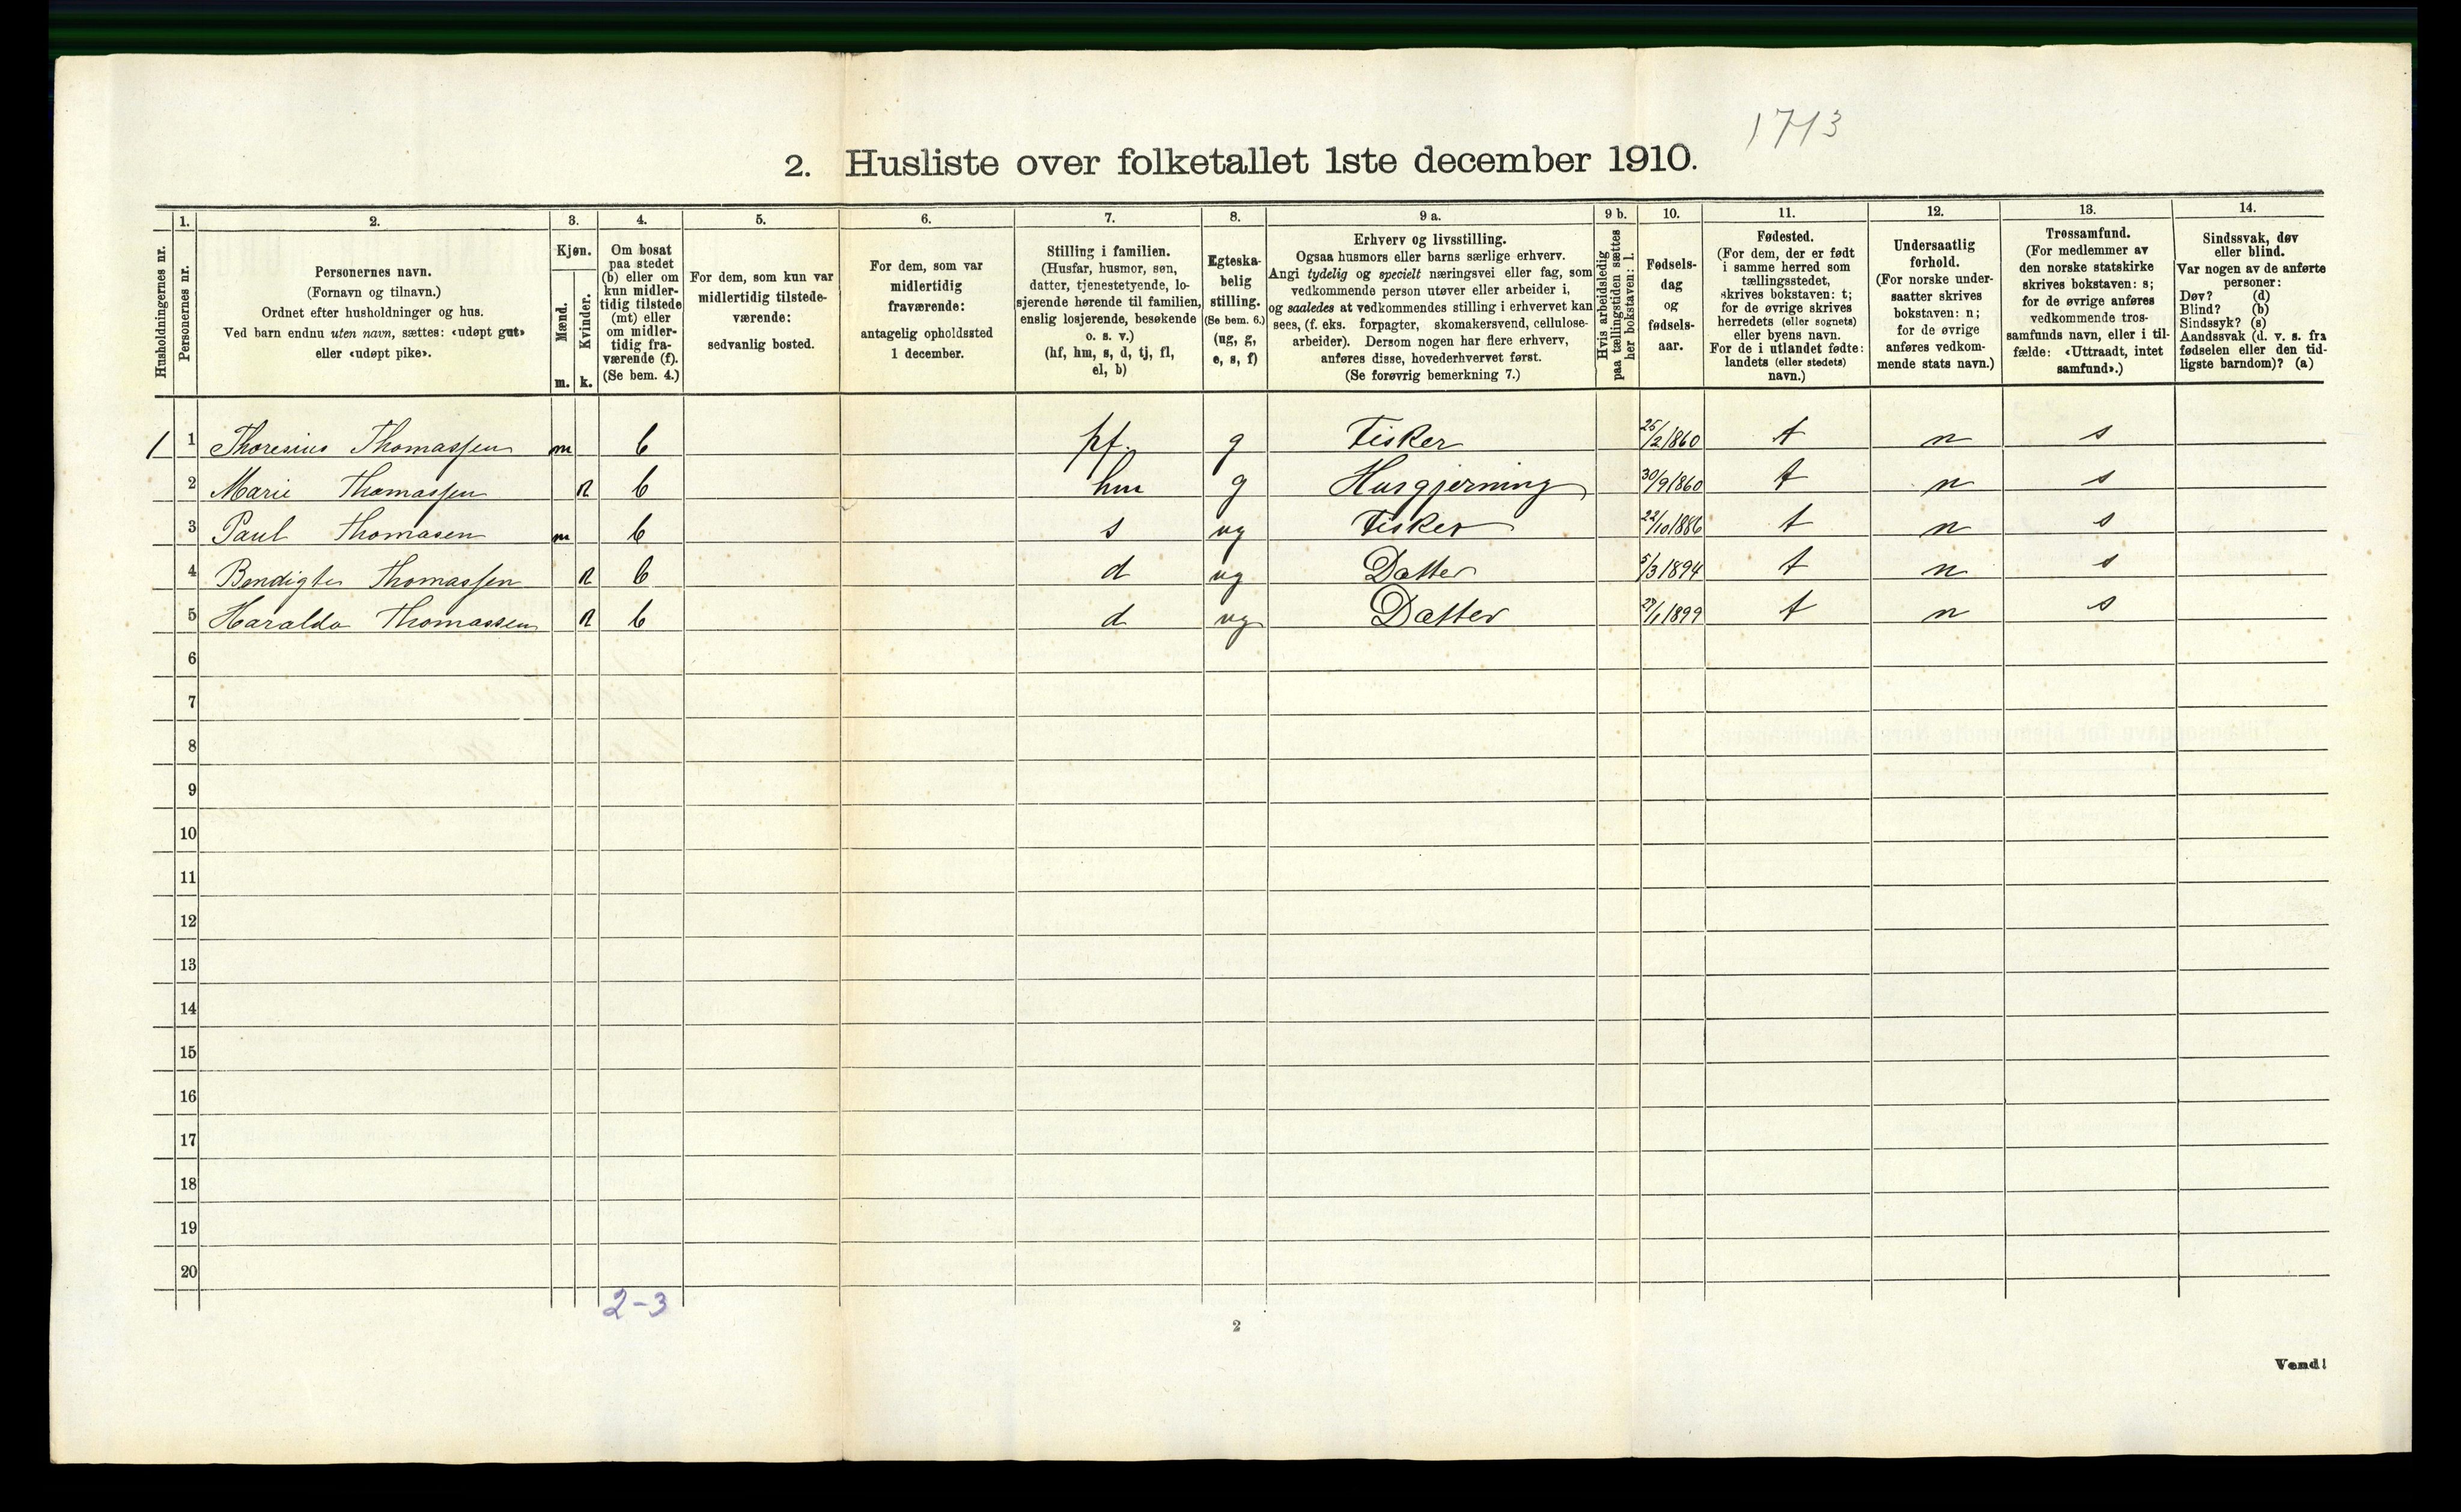 1713
2. Husliste over folketallet 1ste december 1910.
Husholdningernes nr.
1.
Personernes nr.
2.
Personernes navn.
(Fornavn og tilnavn.)
Ordnet efter husholdninger og hus.
Ved barn endnu uten navn, sættes: «udøpt gut»
eller «udøpt pike».
3.
Kjøn.
Mænd.
m.
Kvinder.
k.
4.
Om bosat
paa stedet
(b) eller om
kun midler-
tidig tilstede
(mt) eller
om midler-
tidig fra-
værende (f).
(Se bem. 4.)
5.
For dem, som kun var
midlertidig tilstede-
værende:
sedvanlig bosted.
6.
For dem, som var
midlertidig
fraværende:
antagelig opholdssted
1 december.
7.
Stilling i familien.
(Husfar, husmor, søn,
datter, tjenestetyende, lo-
sjerende hørende til familien,
enslig losjerende, besøkende
o. s. v.)
(hf, hm, s, d, tj, fl,
el, b)
8.
Egteska-
belig
stilling.
(Se bem. 6.)
(ug, g,
e, s, f)
9 a.
Erhverv og livsstilling.
Ogsaa husmors eller barns særlige erhverv.
Angi tydelig og specielt næringsvei eller fag, som
vedkommende person utøver eller arbeider i,
og saaledes at vedkommendes stilling i erhvervet kan
sees, (f. eks. forpagter, skomakersvend, cellulose-
arbeider). Dersom nogen har flere erhverv,
anføres disse, hovederhvervet først.
(Se forøvrig bemerkning 7.)
9 b.
Hvis arbeidsledig
paa tællingstiden sættes
her bokstaven: l.
10.
Fødsels-
dag
og
fødsels-
aar.
11.
Fødested.
(For dem, der er født
i samme herred som
tællingsstedet,
skrives bokstaven: t;
for de øvrige skrives
herredets (eller sognets)
eller byens navn.
For de i utlandet fødte:
landets (eller stedets)
navn.)
12.
Undersaatlig
forhold.
(For norske under-
saatter skrives
bokstaven: n;
for de øvrige
anføres vedkom-
mende stats navn.)
13.
Trossamfund.
(For medlemmer av
den norske statskirke
skrives bokstaven: s;
for de øvrige anføres
vedkommende tros-
samfunds navn, eller i til-
fælde: «Uttraadt, intet
samfund».)
14.
Sindssvak, døv
eller blind.
Var nogen av de anførte
personer:
Døv? (d)
Blind? (b)
Sindssyk? (s)
Aandssvak (d. v. s. fra
fødselen eller den tid-
ligste barndom)? (a)
1 1 Thoresius Thomassen m b hf. g Fisker 25/2 1860 t n s
2 Marie Thomassen k b hm g Husgjerning 30/9 1860 t n s
3 Paul Thomasen m b s ug Fisker 22/10 1886 t n s
4 Bendigte Thomassen k b d ug Datter 5/3 1894 t n s
5 Haralda Thomassen k b d ug Datter /1 1899 t n s
6
7
8
9
10
11
12
13
14
15
16
17
18
19
20
2-3
2
Vend!